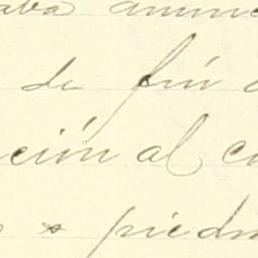 aba anunc
de fin
ción al c
piedr